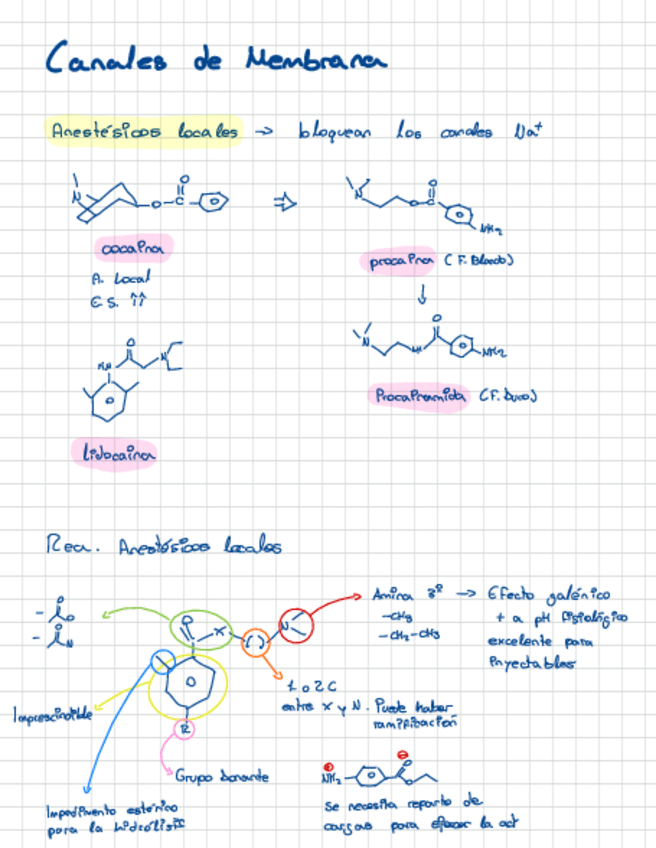 Canales de Membrana
Anestésicos locales → bloquean los canales Na⁺
N O O C
N O O NH₂
cocaína
procaína (F. Blando)
A. Local
E.S. ↑↑
N NH O NH₂
HN O N
Procainamida (F. Duro)
lidocaína
Rea. Anestésicos locales
- O O
- O N
O X ( ) N
Amina 3ª → Efecto galénico
-CH₃ + a pH fisiológico
-CH₂-CH₃ excelente para
inyectables
1 o 2 C
entre X y N. Puede haber
ramificación
Imprescindible
R
Grupo donante
⊕ ⊖
NH₂ O O
Impedimento estérico
para la hidrólisis
Se necesita reparto de
cargas para ejercer la act